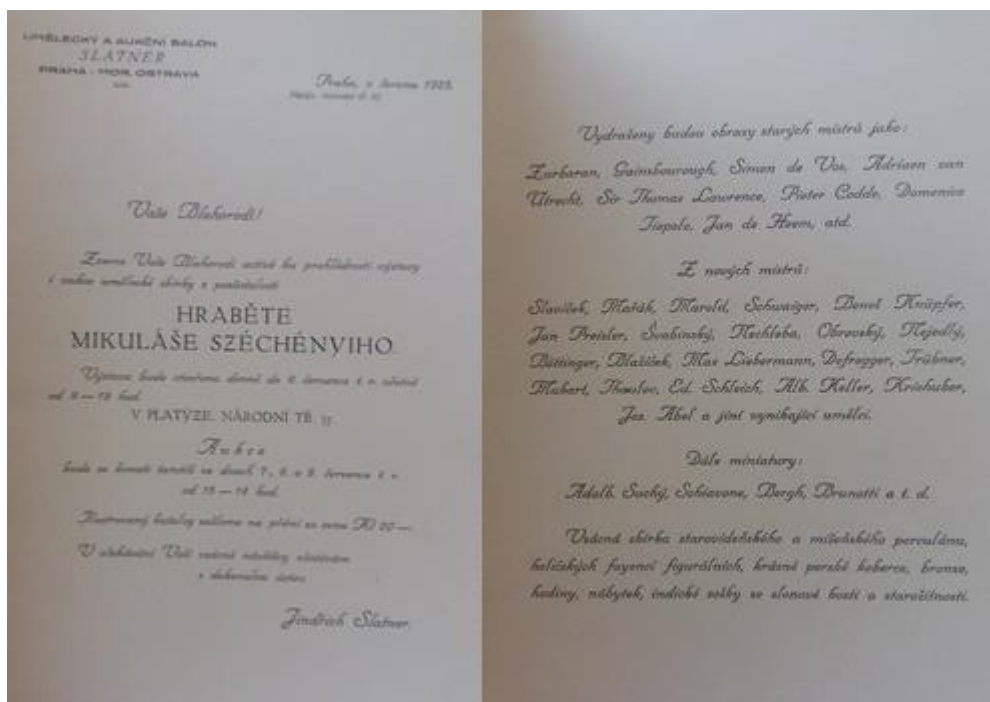 UMĚLECKÝ A AUKČNÍ SALON
SLATNER
PRAHA - MOR. OSTRAVA
Praha, v červenci
Vaše Blahorodí!
Zveme Vaše Blahorodí uctivě ku prohlédnutí výstavy
a aukce umělecké sbírky z pozůstalosti
HRABĚTE
MIKULÁŠE SZÉCHÉNYIHO.
Výstava bude otevřena denně do 6. července t. r. včetně
od 9 — 19 hod.
V PLATÝZE, NÁRODNÍ TŘ.
Aukce
bude se konati tamtéž ve dnech 7., 8. a 9. července t. r.
od 15 — 19 hod.
Ilustrovaný katalog zašleme na přání za cenu Kč 20 —.
V očekávání Vaší vzácné návštěvy
v dokonalé úctě
Jindřich Slatner.
Vydraženy budou obrazy starých mistrů jako:
Zurbaran, Gainsbourough, Simon de Vos, Adriaen van
Utrecht, Sir Thomas Lawrence, Pieter Codde, Domenico
Tiepolo, Jan de Heem, atd.
Z nových mistrů:
Slavíček, Mařák, Marold, Schwaiger, Beneš Knüpfer,
Jan Preisler, Švabinský, Nechleba, Obrovský, Nejedlý,
Böttinger, Blažíček, Max Liebermann, Defregger, Trübner,
Makart, Ed. Schleich, Alb. Keller, Kriehuber,
Jos. Abel a jiní vynikající umělci.
Dále miniatury:
Adalb. Suchý, Schiavone, Bergh, Brunotti a t. d.
Vzácná sbírka starovídeňského a míšeňského porculánu,
holičských fayencí figurálních, krásné perské koberce, bronze,
hodiny, nábytek, indické sošky ze slonové kosti a starožitnosti.